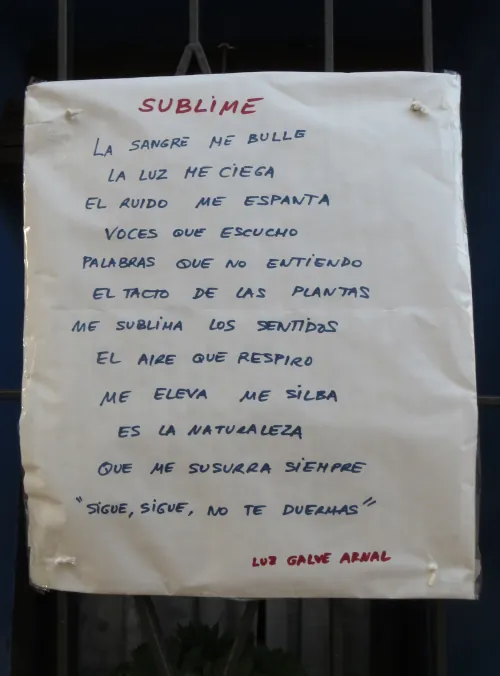 SUBLIME
LA SANGRE ME BULLE
LA LUZ ME CIEGA
EL RUIDO ME ESPANTA
VOCES QUE ESCUCHO
PALABRAS QUE NO ENTIENDO
EL TACTO DE LAS PLANTAS
ME SUBLIMA LOS SENTIDOS
EL AIRE QUE RESPIRO
ME ELEVA ME SILBA
ES LA NATURALEZA
QUE ME SUSURRA SIEMPRE
"SIGUE, SIGUE, NO TE DUERMAS"
LUZ GALVE ARNAL